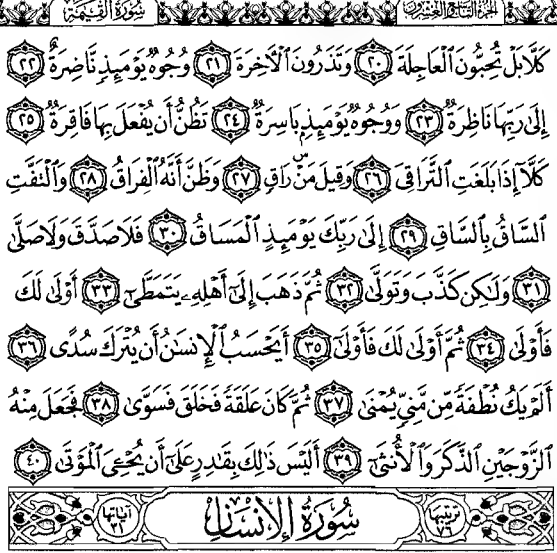 سُورَةُ الْقِيَامَةِ الجزء التاسع والعشرون
كَلَّا بَلْ تُحِبُّونَ الْعَاجِلَةَ ٢٠ وَتَذَرُونَ الْآخِرَةَ ٢١ وُجُوهٌ يَوْمَئِذٍ نَّاضِرَةٌ ٢٢
إِلَىٰ رَبِّهَا نَاظِرَةٌ ٢٣ وَوُجُوهٌ يَوْمَئِذٍ بَاسِرَةٌ ٢٤ تَظُنُّ أَن يُفْعَلَ بِهَا فَاقِرَةٌ ٢٥
كَلَّا إِذَا بَلَغَتِ التَّرَاقِيَ ٢٦ وَقِيلَ مَنْ رَاقٍ ٢٧ وَظَنَّ أَنَّهُ الْفِرَاقُ ٢٨ وَالْتَفَّتِ
السَّاقُ بِالسَّاقِ ٢٩ إِلَىٰ رَبِّكَ يَوْمَئِذٍ الْمَسَاقُ ٣٠ فَلَا صَدَّقَ وَلَا صَلَّىٰ
٣١ وَلَٰكِن كَذَّبَ وَتَوَلَّىٰ ٣٢ ثُمَّ ذَهَبَ إِلَىٰ أَهْلِهِ يَتَمَطَّىٰ ٣٣ أَوْلَىٰ لَكَ
فَأَوْلَىٰ ٣٤ ثُمَّ أَوْلَىٰ لَكَ فَأَوْلَىٰ ٣٥ أَيَحْسَبُ الْإِنسَانُ أَن يُتْرَكَ سُدًى ٣٦
أَلَمْ يَكُ نُطْفَةً مِّن مَّنِيٍّ يُمْنَىٰ ٣٧ ثُمَّ كَانَ عَلَقَةً فَخَلَقَ فَسَوَّىٰ ٣٨ فَجَعَلَ مِنْهُ
الزَّوْجَيْنِ الذَّكَرَ وَالْأُنثَىٰ ٣٩ أَلَيْسَ ذَٰلِكَ بِقَادِرٍ عَلَىٰ أَن يُحْيِيَ الْمَوْتَىٰ ٤٠
ترتيبها ٧٦ سُورَةُ الْإِنسَانِ آياتها ٣١